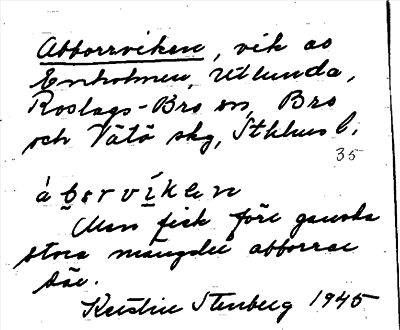 Abborrviken, vik av
Enholmen, Utlunda,
Roslags-Bro sn, Bro
och Vätö skg, Sthlms l.
35
ábərvìken
Man fick före ganska
stora mängder abborrar
där.
Kerstin Stenberg 1945